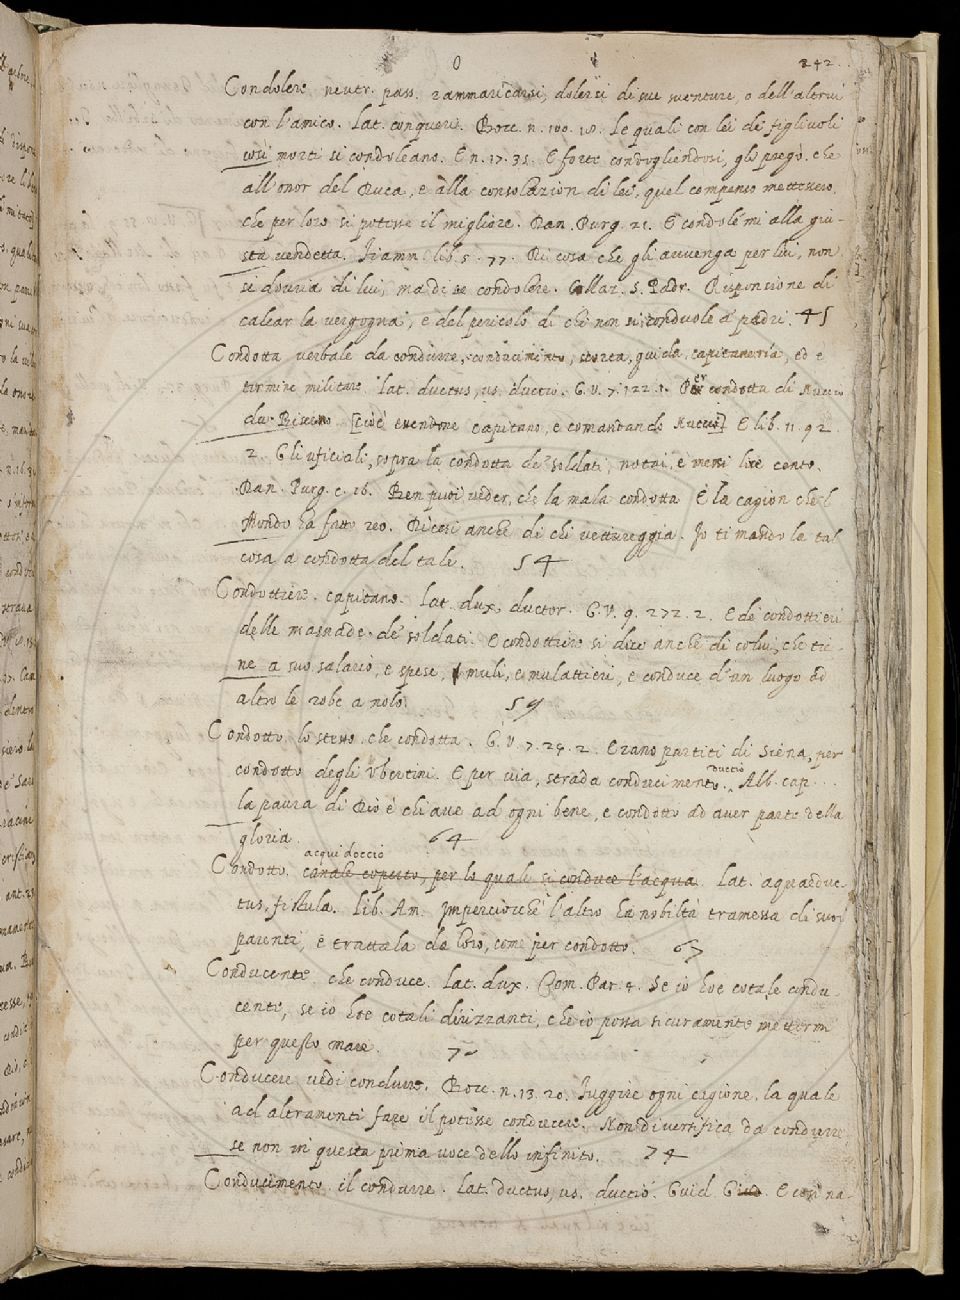 O
242
Condolere neutr. pass. rammaricarsi, dolersi di sue sventure, o dell'altrui
con l'amico. Lat. conqueri. Bocc. n. 100. 18. Le quali con lei de figliuoli
così morti si condoleano. E n. 17. 35. E forte condogliendosi, gli pregò. che
all'onor del Duca, e alla consolazion di lei, quel compenso mettessero,
che per loro si potesse il migliore. Dan. Purg. 21. E condole mi alla giu-
sta vendetta. Fiamm. lib. 5. 77. Di cosa che gli avvenga per lui, non
si dovria di lui, ma di se condolere. Collaz. S. Padr. Responsione di
calcar la vergogna, e del pericolo di chi non si conduole a padri. 45
Condotta verbale da condurre, conducimento, scorta, guida, capitaneria, ed è
termine militare. Lat. ductus, us. ductio. G. V. 7. 122. 1. Per condotta di Nuccio
da Biseno [cioè essendone capitano, e comandando Nuccio] E lib. 11. 92.
2. Gli uficiali, sopra la condotta de' soldati, notai, e messi lire cento.
Dan. Purg. c. 16. Ben puoi veder, che la mala condotta È la cagion che'l
Mondo ha fatto reo. Dicesi anche di chi vettureggia. Io ti mando la tal
cosa a condotta del tale. 54
Condottiere. capitano. Lat. dux, ductor. G. V. 9. 272. 2. E de condottieri
delle masnade de' soldati. E condottiere si dice anche di colui, che tie-
ne a suo salario, e spese, muli, e mulattieri, e conduce d'un luogo ad
altro le robe a nolo. 59
Condotto, lo stesso che condotta. G. V. 7. 29. 2. Erano partiti di Siena, per
condotto degli Ubertini. E per via, strada conducimento. ductio Alb. cap. . .
la paura di Dio è chiave ad ogni bene, e condotto ad aver parte della
gloria. 64
Condotto. acquidoccio canale coperto, per lo quale si conduce l'acqua. Lat. aquaeduc-
tus, fistula. Lib. Am. Imperciocchè l'altro ha nobiltà tramessa di suoi
parenti, e trattala da loro, come per condotto. 67
Conducente, che conduce. Lat. dux. Com. Par. 4. Se io hoe cotale condu-
cente, se io hoe cotali dirizzanti, che io possa sicuramente mettermi
per questo mare. 70
Conducere vedi condurre. Bocc. n. 13. 20. Fuggire ogni cagione, la quale
ad altramenti fare il potesse conducere. Non diversifica da condurre
se non in questa prima voce dello infinito. 74
Conducimento. il condurre. Lat. ductus, us. ductio. Guid. Giud. E con na-